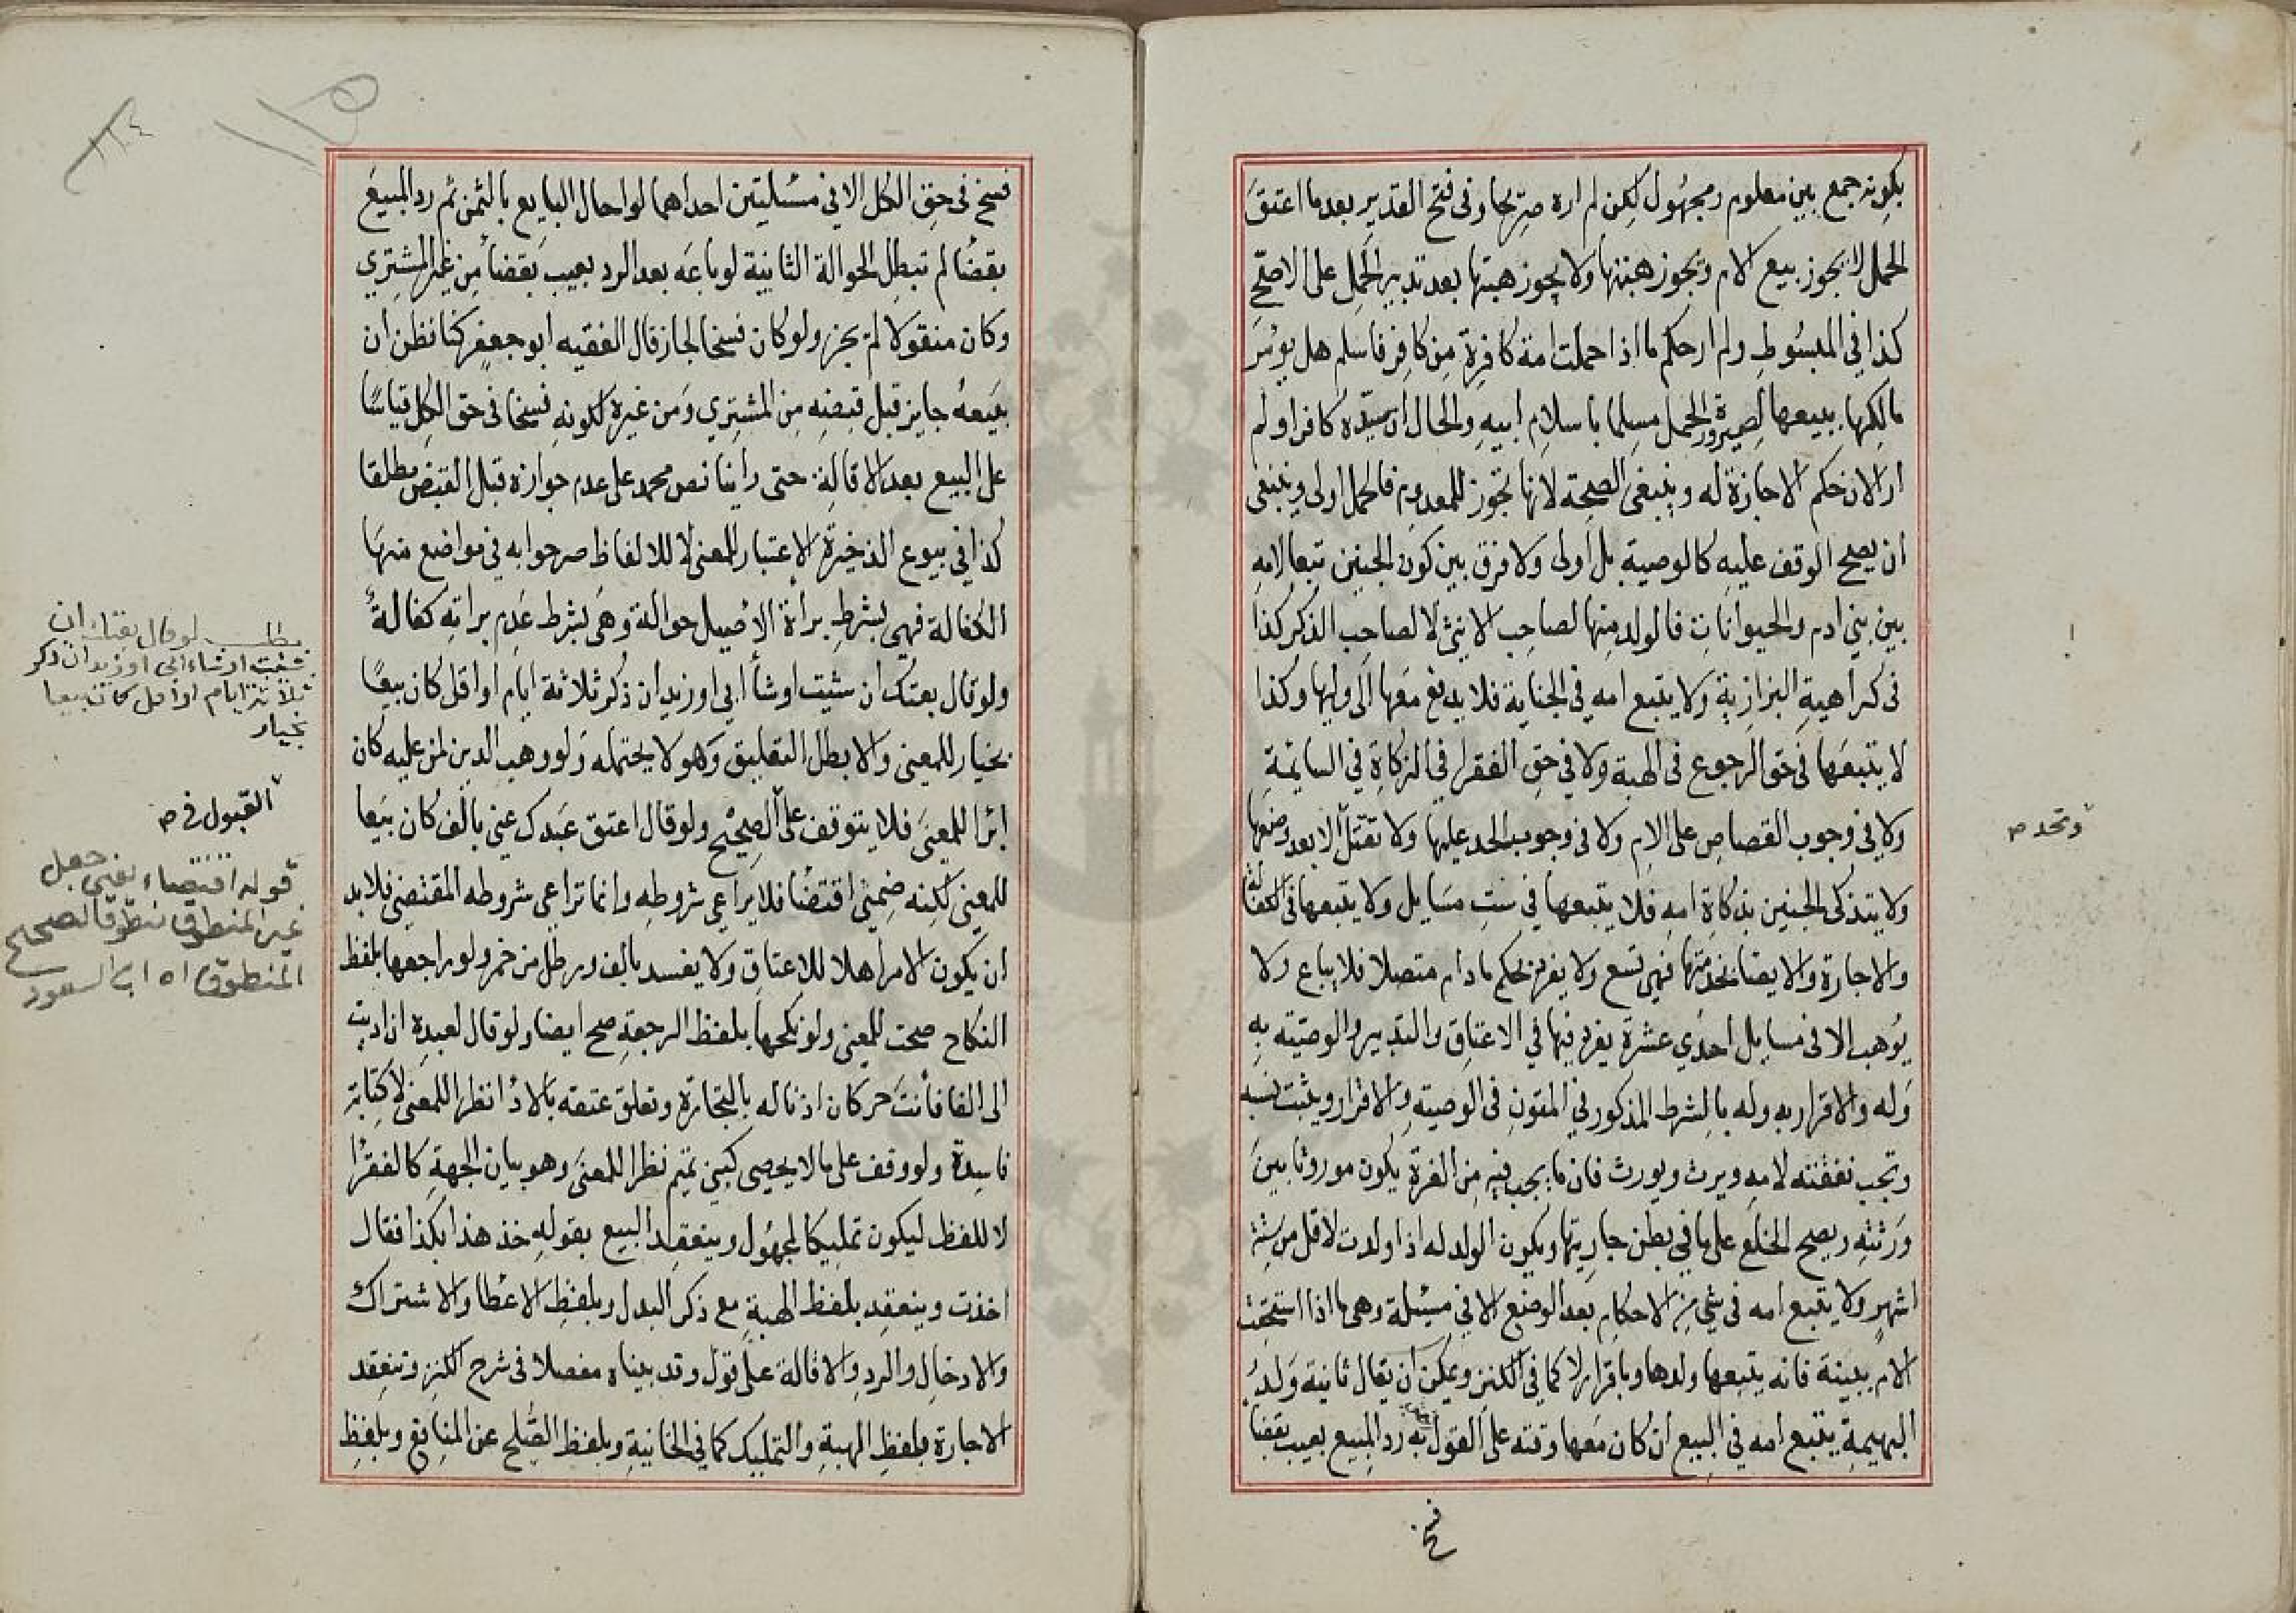 بكونه جمع بين معلوم ومجهول لكن لم اره صريحا وفي فتح القدير بعد ما اعتق
الحمل لا يجوز بيع الام وتجوز هبتها ولا يجوز هبتها بعد تدبير الحمل على الاصح
كذا في المبسوط ولم ار حكم ما اذا حملت امة كافرة من كافر فاسلم هل يؤمر
مالكها ببيعها لصيرورة الحمل مسلما باسلام ابيه والحال ان سيده كافر اولم
ار الان حكم الاجازة له وينبغي الصحة لانها تجوز للمعدوم فالحمل اولى وينبغي
ان يصح الوقف عليه كالوصية بل اولى ولا فرق بين كون الجنين تبعا لامه
بين بني ادم والحيوانات فالولد منها لصاحب الانثى لا لصاحب الذكر كذا
في كراهية البزازية ولا يتبع امه في الجناية فلا يدفع معها الى وليها وكذا
لا يتبعها في حق الرجوع في الهبة ولا في حق الفقرا في الزكاة في السايمة
ولا في وجوب القصاص على الام ولا في وجوب الحد عليها ولا تقتل الا بعد وضعها
وتحد م
ولا يتذكى الجنين بذكاة امه فلا يتبعها في ست مسايل ولا يتبعها في الكفالة
والاجارة والايصا بخدمتها فهي تسع ولا يفرد بحكم مادام متصلا فلا يباع ولا
يوهب الا في مسايل احدى عشرة يفرد فيها في الاعتاق والتدبير والوصية به
وله والاقرار به وله بالشرط المذكور في المتون في الوصية والاقرار ويثبت نسبه
وتجب نفقته لامه ويرث ويورث فان ما يجب فيه من الغرة يكون موروثا بين
ورثته ويصح الخلع على ما في بطن جاريتها ويكون الولد له اذا ولدت لاقل من ستة
اشهر ولا يتبع امه في شي من الاحكام بعد الوضع الا في مسئلة وهي ما اذا استحقت
الام ببينة فانه يتبعها ولدها وباقرار لا كما في الكنز ويمكن ان يقال ثانية ولد
البهيمة يتبع امه في البيع ان كان معها وقته على القول به رد المبيع بعيب بقضا
فسخ
فسخ في حق الكل الا في مسئلتين احداهما لو احال البايع بالثمن ثم رد المبيع
بقضا لم تبطل الحوالة الثانية لو باعه بعد الرد بعيب بقضا من غير المشتري
وكان منقولا لم يجز ولو كان فسخا لجاز قال الفقيه ابو جعفر كنا نظن ان
بيعه جايز قبل قبضه من المشتري ومن غيره لكونه فسخا في حق الكل قياسا
على البيع بعد الاقالة حتى راينا نص محمد على عدم جوازه قبل القبض مطلقا
كذا في بيوع الذخيرة الاعتبار للمعنى لا للالفاظ صرحوا به في مواضع منها
الكفالة فهي بشرط براة الاصيل حوالة وهي بشرط عدم براته كفالة
ولو قال بعتك ان شيت او شأ ابي او زيد ان ذكر ثلاثة ايام او اقل كان بيعا
بخيار للمعنى والا بطل التعليق وهو لا يحتمله ولو وهب الدين لمن عليه كان
ابرا للمعنى فلا يتوقف على الصحيح ولو قال اعتق عبدك عني بالف كان بيعا
للمعنى لكنه ضمني اقتضا فلا يراعي شروطه وانما تراعي شروطه المقتضي فلا بد
ان يكون الامر اهلا للاعتاق ولا يفسد بالف ورطل من خمر ولو راجعها بلفظ
النكاح صحت للمعنى ولو نكحها بلفظ الرجعة صح ايضا ولو قال لعبده ان اديت
الى الفا فانت حر كان اذنا له بالتجارة وتعلق عتقه بالادا نظرا للمعنى لا كتابة
فاسدة ولو وقف على مالا يحصى كبني تميم نظرا للمعنى وهو بيان الجهة كالفقرا
لا للفظ ليكون تمليكا لمجهول وينعقد البيع بقوله خذ هذا بكذا فقال
اخذت وينعقد بلفظ الهبة مع ذكر البدل وبلفظ الاعطا والاشتراك
والادخال والرد والاقالة على قول وقد بيناه مفصلا في شرح الكنز وتنعقد
الاجارة بلفظ الهبة والتمليك كما في الخانية وبلفظ الصلح عن المنافع وبلفظ
مطلب لو قال بعتك ان
شئت او شاء ابي او زيد ان ذكر
ثلاثة ايام او اقل كان بيعا
بخيار
القبول في م
قوله اقتضاء يعني جعل
غير المنطوق منطوقا لتصحيح
المنطوق اه ابي السعود